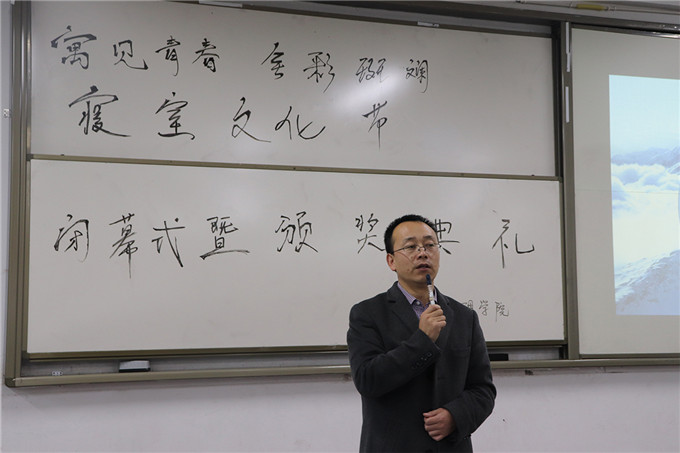 寓见青春 舍彩斑斓
寝室文化节
闭幕式暨颁奖典礼
理学院